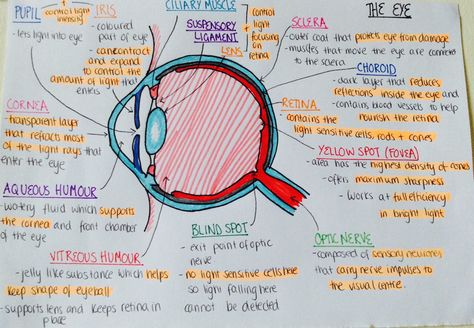 THE EYE
PUPIL
+ control light
intensity
- lets light into eye
IRIS
- coloured
part of eye
- can contract and
expand
to control the
amount of light that
enters
CILIARY MUSCLE
SUSPENSORY
LIGAMENT
LENS
+
control
light
+
focusing
on
retina
SCLERA
- outer coat that protects eye from damage
- muscles that move the eye are connected
to the sclera
CHOROID
- dark layer that reduces
reflections inside the eye and
- contains blood vessels to help
nourish the retina
RETINA
- contains the
light sensitive cells, rods + cones
YELLOW SPOT (FOVEA)
- area has the highest density of cones
- offers maximum sharpness
- works at full efficiency
in bright light
CORNEA
- transparent layer
that refracts most
of the light rays that
enter the eye
AQUEOUS HUMOUR
- watery fluid which supports
the cornea and front chamber
of the eye
VITREOUS HUMOUR
- jelly like substance which helps
keep shape of eyeball
- supports lens and keeps retina in
place
BLIND SPOT
- exit point of optic
nerve
- no light sensitive cells here
so light falling here
cannot be detected
OPTIC NERVE
- composed of sensory neurones
that carry nerve impulses to
the visual centre.